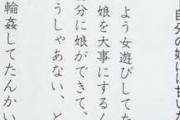 自分の娘には甘い
よう女遊びしてた
娘を大事にする
分に娘ができて、
うしゃあない、
輪姦してたんかい